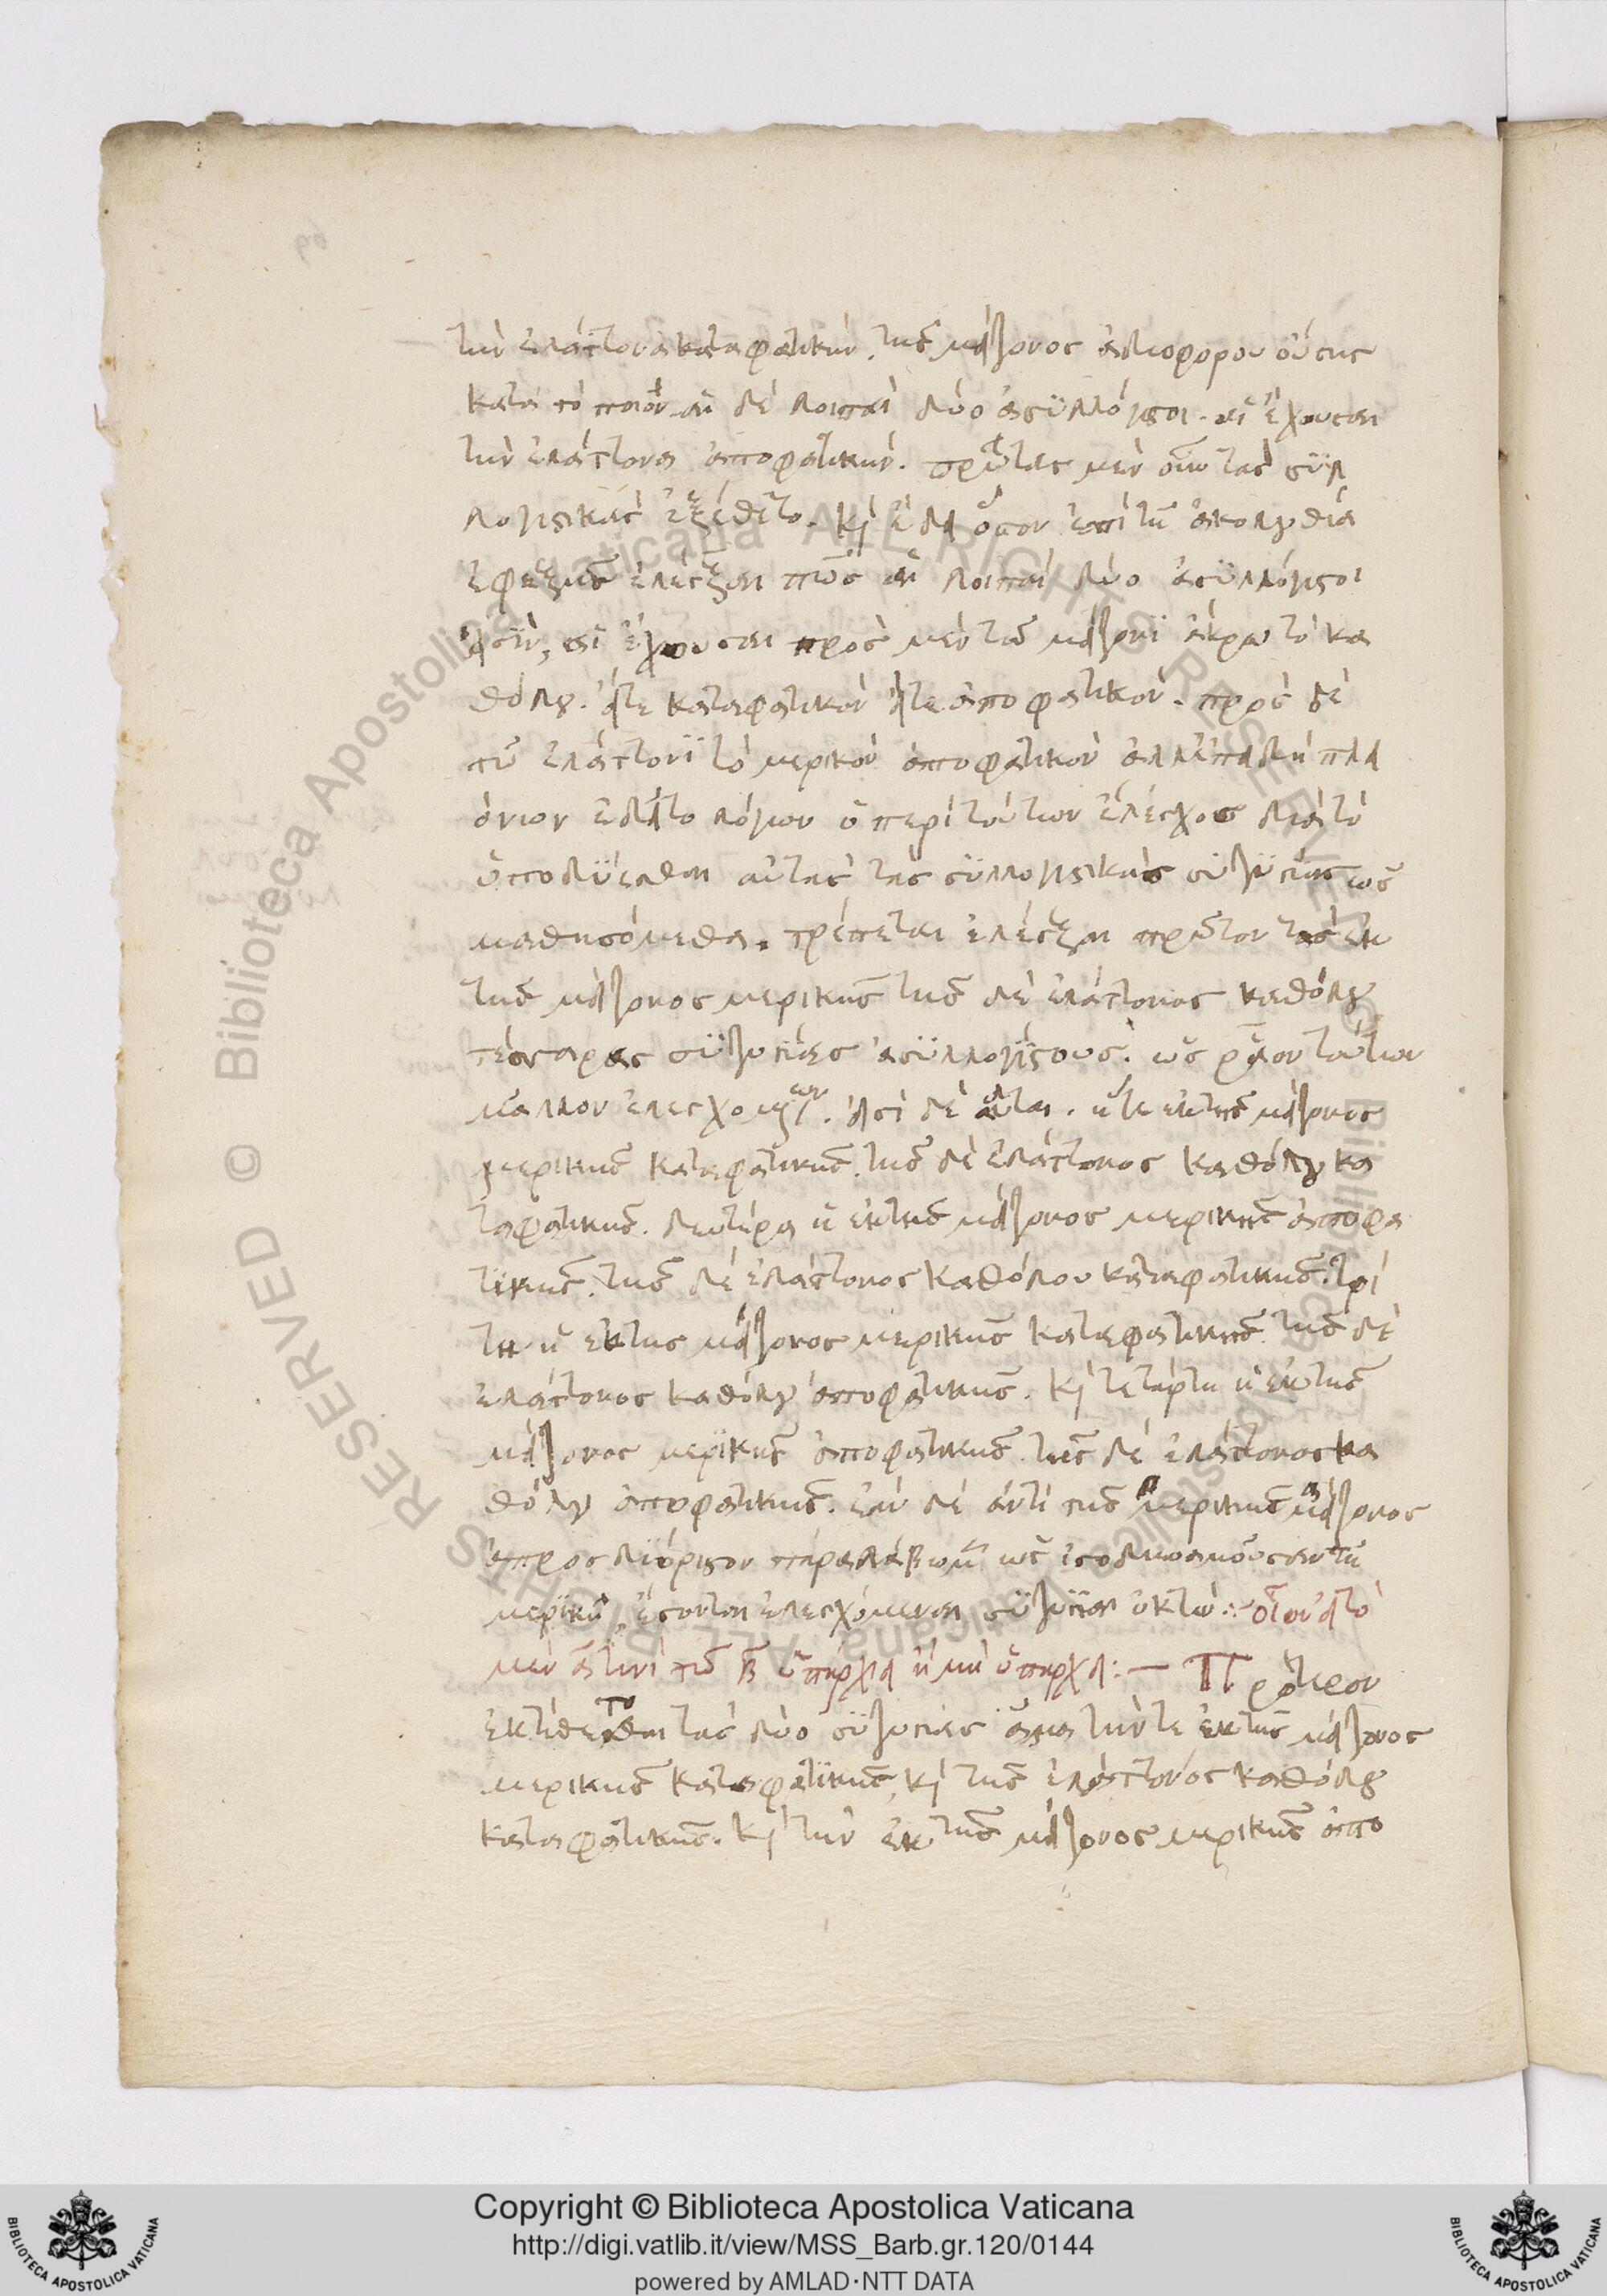 τὴν ἐλάττονα καταφατικήν. τῆς μείζονος ἀδιαφόρου οὔσης
κατὰ τὸ ποιόν. αἱ δὲ λοιπαὶ δύο ἀσϋλλόγιστοι. αἱ ἔχουσαι
τὴν ἐλάττονα ἀποφατικήν. πρῶτας μὲν οὖν τὰς σϋλ
λογιστικὰς ἐξέθετο. κὶ ἔδει ὅσον ἐπὶ τῆ ἀκολουθία
ἐφεξῆς ἐλέγξαι πῶς αἱ λοιπαὶ δύο ἀσϋλλόγιστοι
εἰσϊν, αἱ ἔχουσαι πρὸς μὲν τῶ μείζονϊ ἄκρω τὸ κα
θόλου. εἴτε καταφατικὸν εἴτε ἀποφατικόν. πρὸς δὲ
τῶ ἐλάττονϊ τὸ μερικὸν ἀποφατικὸν ἀλλ' ἐπειδὴ πλει
όνων ἐδεῖτο λόγων ὁ περὶ τούτων ἔλεγχος διὰ τὸ
ὑποδϋεσθαι αὐτὰς τὰς σϋλλογιστικὰς σϋζϋγίας ὡς
μαθησόμεθα. τρέπεται ἐλέγξαι πρῶτον τὰς ἐκ
τῆς μείζονος μερικῆς τῆς δὲ ἐλάττονος καθόλου
τέσσαρας σϋζυγίας ἀσϋλλογίστους. ὡς ῥᾶον τούτων
μᾶλλον ἐλεγχομένων. εἰσὶ δὲ αὗται. ἥτε ἐκ τῆς μείζονος
μερικῆς καταφατικῆς. τῆς δὲ ἐλάττονος καθόλου κα
ταφατικῆς. δευτέρα ἡ ἐκ τῆς μείζονος μερικῆς ἀποφα
τικῆς. τῆς δὲ ἐλάττονος καθόλου καταφατικῆς. τρί
τη ἡ ἐκ τῆς μείζονος μερικῆς καταφατικῆς. τῆς δὲ
ἐλάττονος καθόλου ἀποφατικῆς. κὶ τετάρτη ἡ ἐκ τῆς
μείζονος μερϊκῆς ἀποφατικῆς. τῆς δὲ ἐλάττονος κα
θόλου ἀποφατικῆς. ἐὰν δὲ ἀντὶ τῆς μερικῆς μείζονος
ἀπροσδϊόριστον παραλάβωμεν ὡς ἰσοδυναμοῦσαν τῆ
μερϊκῆ, ἔσονται ἐλεγχόμεναι σϋζυγίαι ὀκτώ:- οἷον εἰ τὸ
μὲν α τινὶ τῶ β ὑπάρχει ἢ μὴ ὑπάρχει:— Πρότερον
ἐκτίθεται τὰς δύο σϋζυγίας ἅμα τήν τε ἐκ τῆς μείζονος
μερικῆς καταφατϊκῆς, κὶ τῆς ἐλάττονος καθόλου
καταφατικῆς. κὶ τὴν ἐκ τῆς μείζονος μερικῆς ἀπο
Copyright © Biblioteca Apostolica Vaticana
http://digi.vatlib.it/view/MSS_Barb.gr.120/0144
powered by AMLAD·NTT DATA